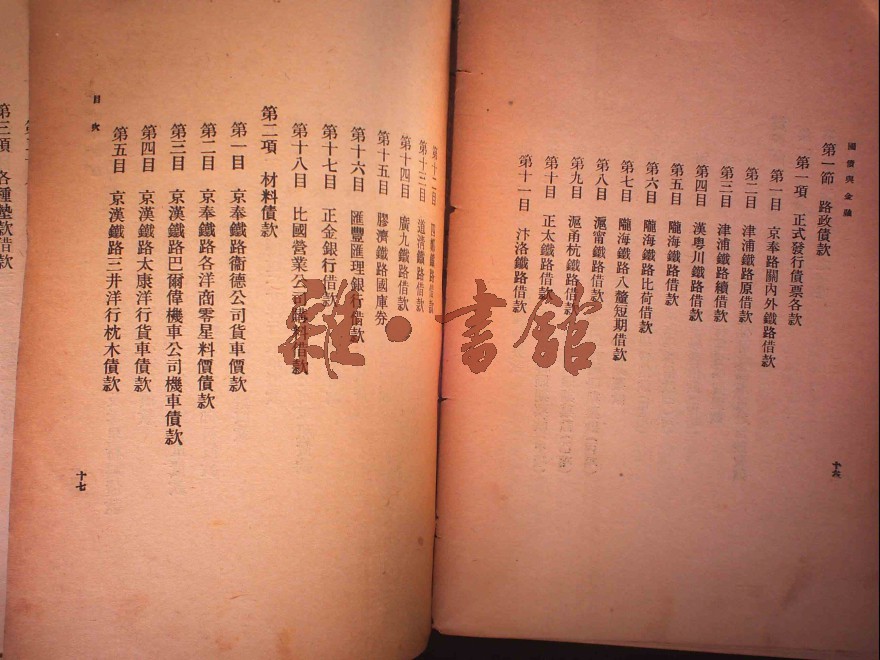 國債與金融
第一節 路政債款
第一項 正式發行債票各款
第一目 京奉路關內外鐵路借款
第二目 津浦鐵路原借款
第三目 津浦鐵路續借款
第四目 漢粵川鐵路借款
第五目 隴海鐵路借款
第六目 隴海鐵路比荷借款
第七目 隴海鐵路八釐短期借款
第八目 滬甯鐵路借款
第九目 滬甬杭鐵路借款
第十目 正太鐵路借款
第十一目 汴洛鐵路借款
十六
第十二目 四鄭鐵路借款
第十三目 道清鐵路借款
第十四目 廣九鐵路借款
第十五目 膠濟鐵路國庫券
第十六目 匯豐匯理銀行借款
第十七目 正金銀行借款
第十八目 比國營業公司購料借款
第二項 材料債款
第一目 京奉鐵路衞德公司貨車價款
第二目 京奉鐵路各洋商零星料價債款
第三目 京漢鐵路巴爾偉機車公司機車債款
第四目 京漢鐵路太康洋行貨車債款
第五目 京漢鐵路三井洋行枕木債款
目次
十七
第三項 各種墊款借款
雜·書館